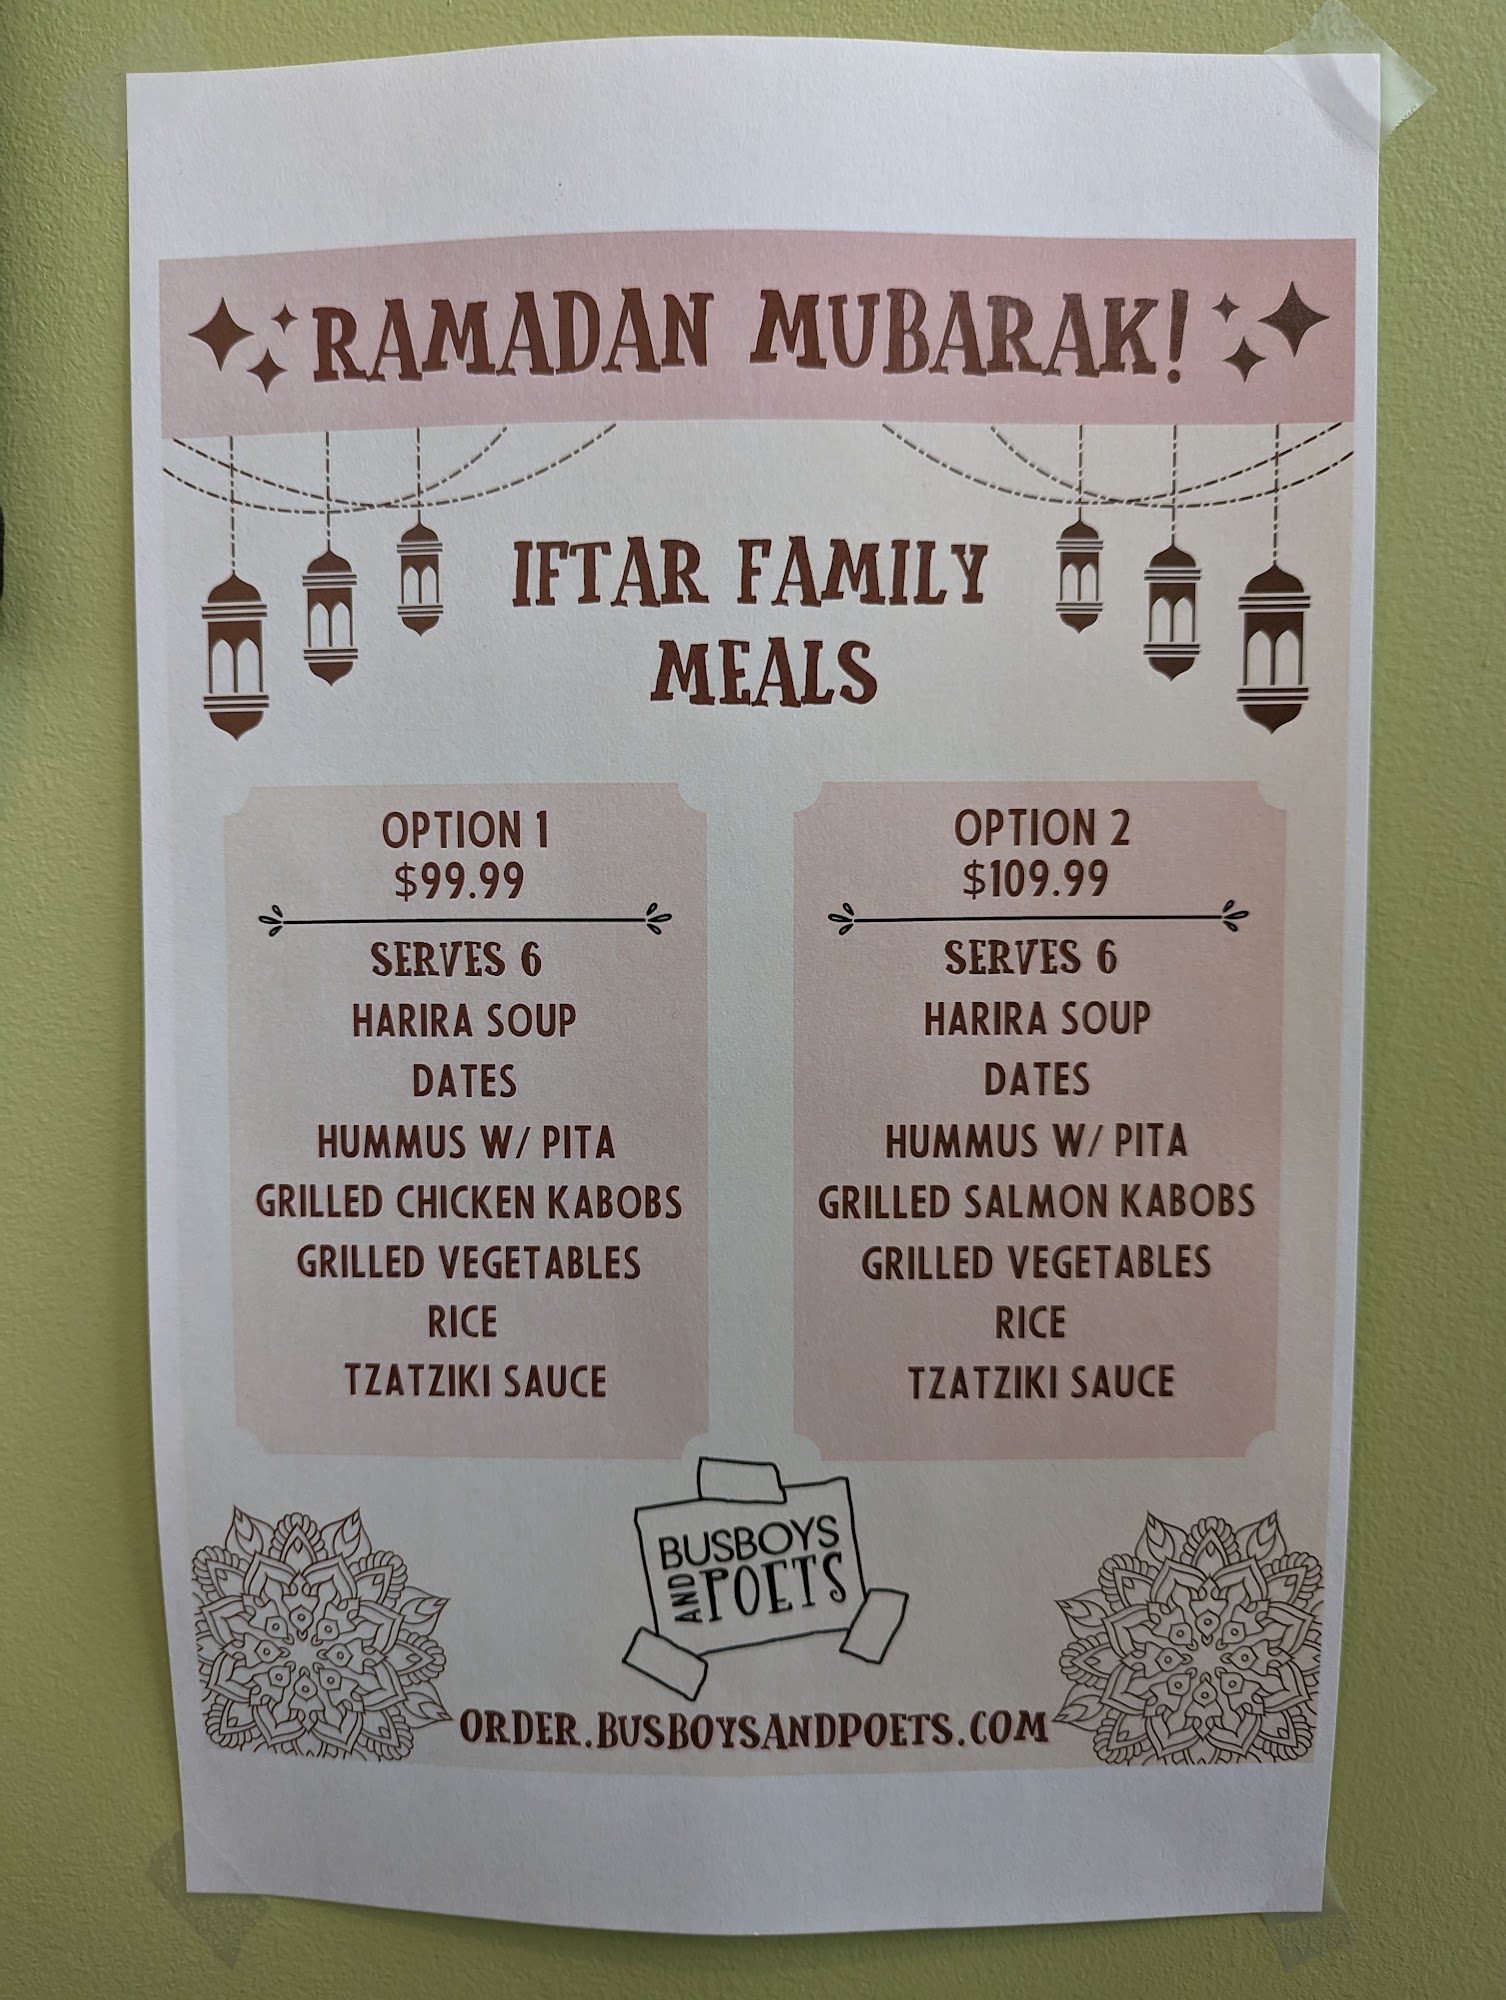 RAMADAN MUBARAK!
IFTAR FAMILY
MEALS
OPTION 1
$99.99
SERVES 6
HARIRA SOUP
DATES
HUMMUS W/ PITA
GRILLED CHICKEN KABOBS
GRILLED VEGETABLES
RICE
TZATZIKI SAUCE
OPTION 2
$109.99
SERVES 6
HARIRA SOUP
DATES
HUMMUS W/ PITA
GRILLED SALMON KABOBS
GRILLED VEGETABLES
RICE
TZATZIKI SAUCE
BUSBOYS
AND POETS
ORDER.BUSBOYSANDPOETS.COM